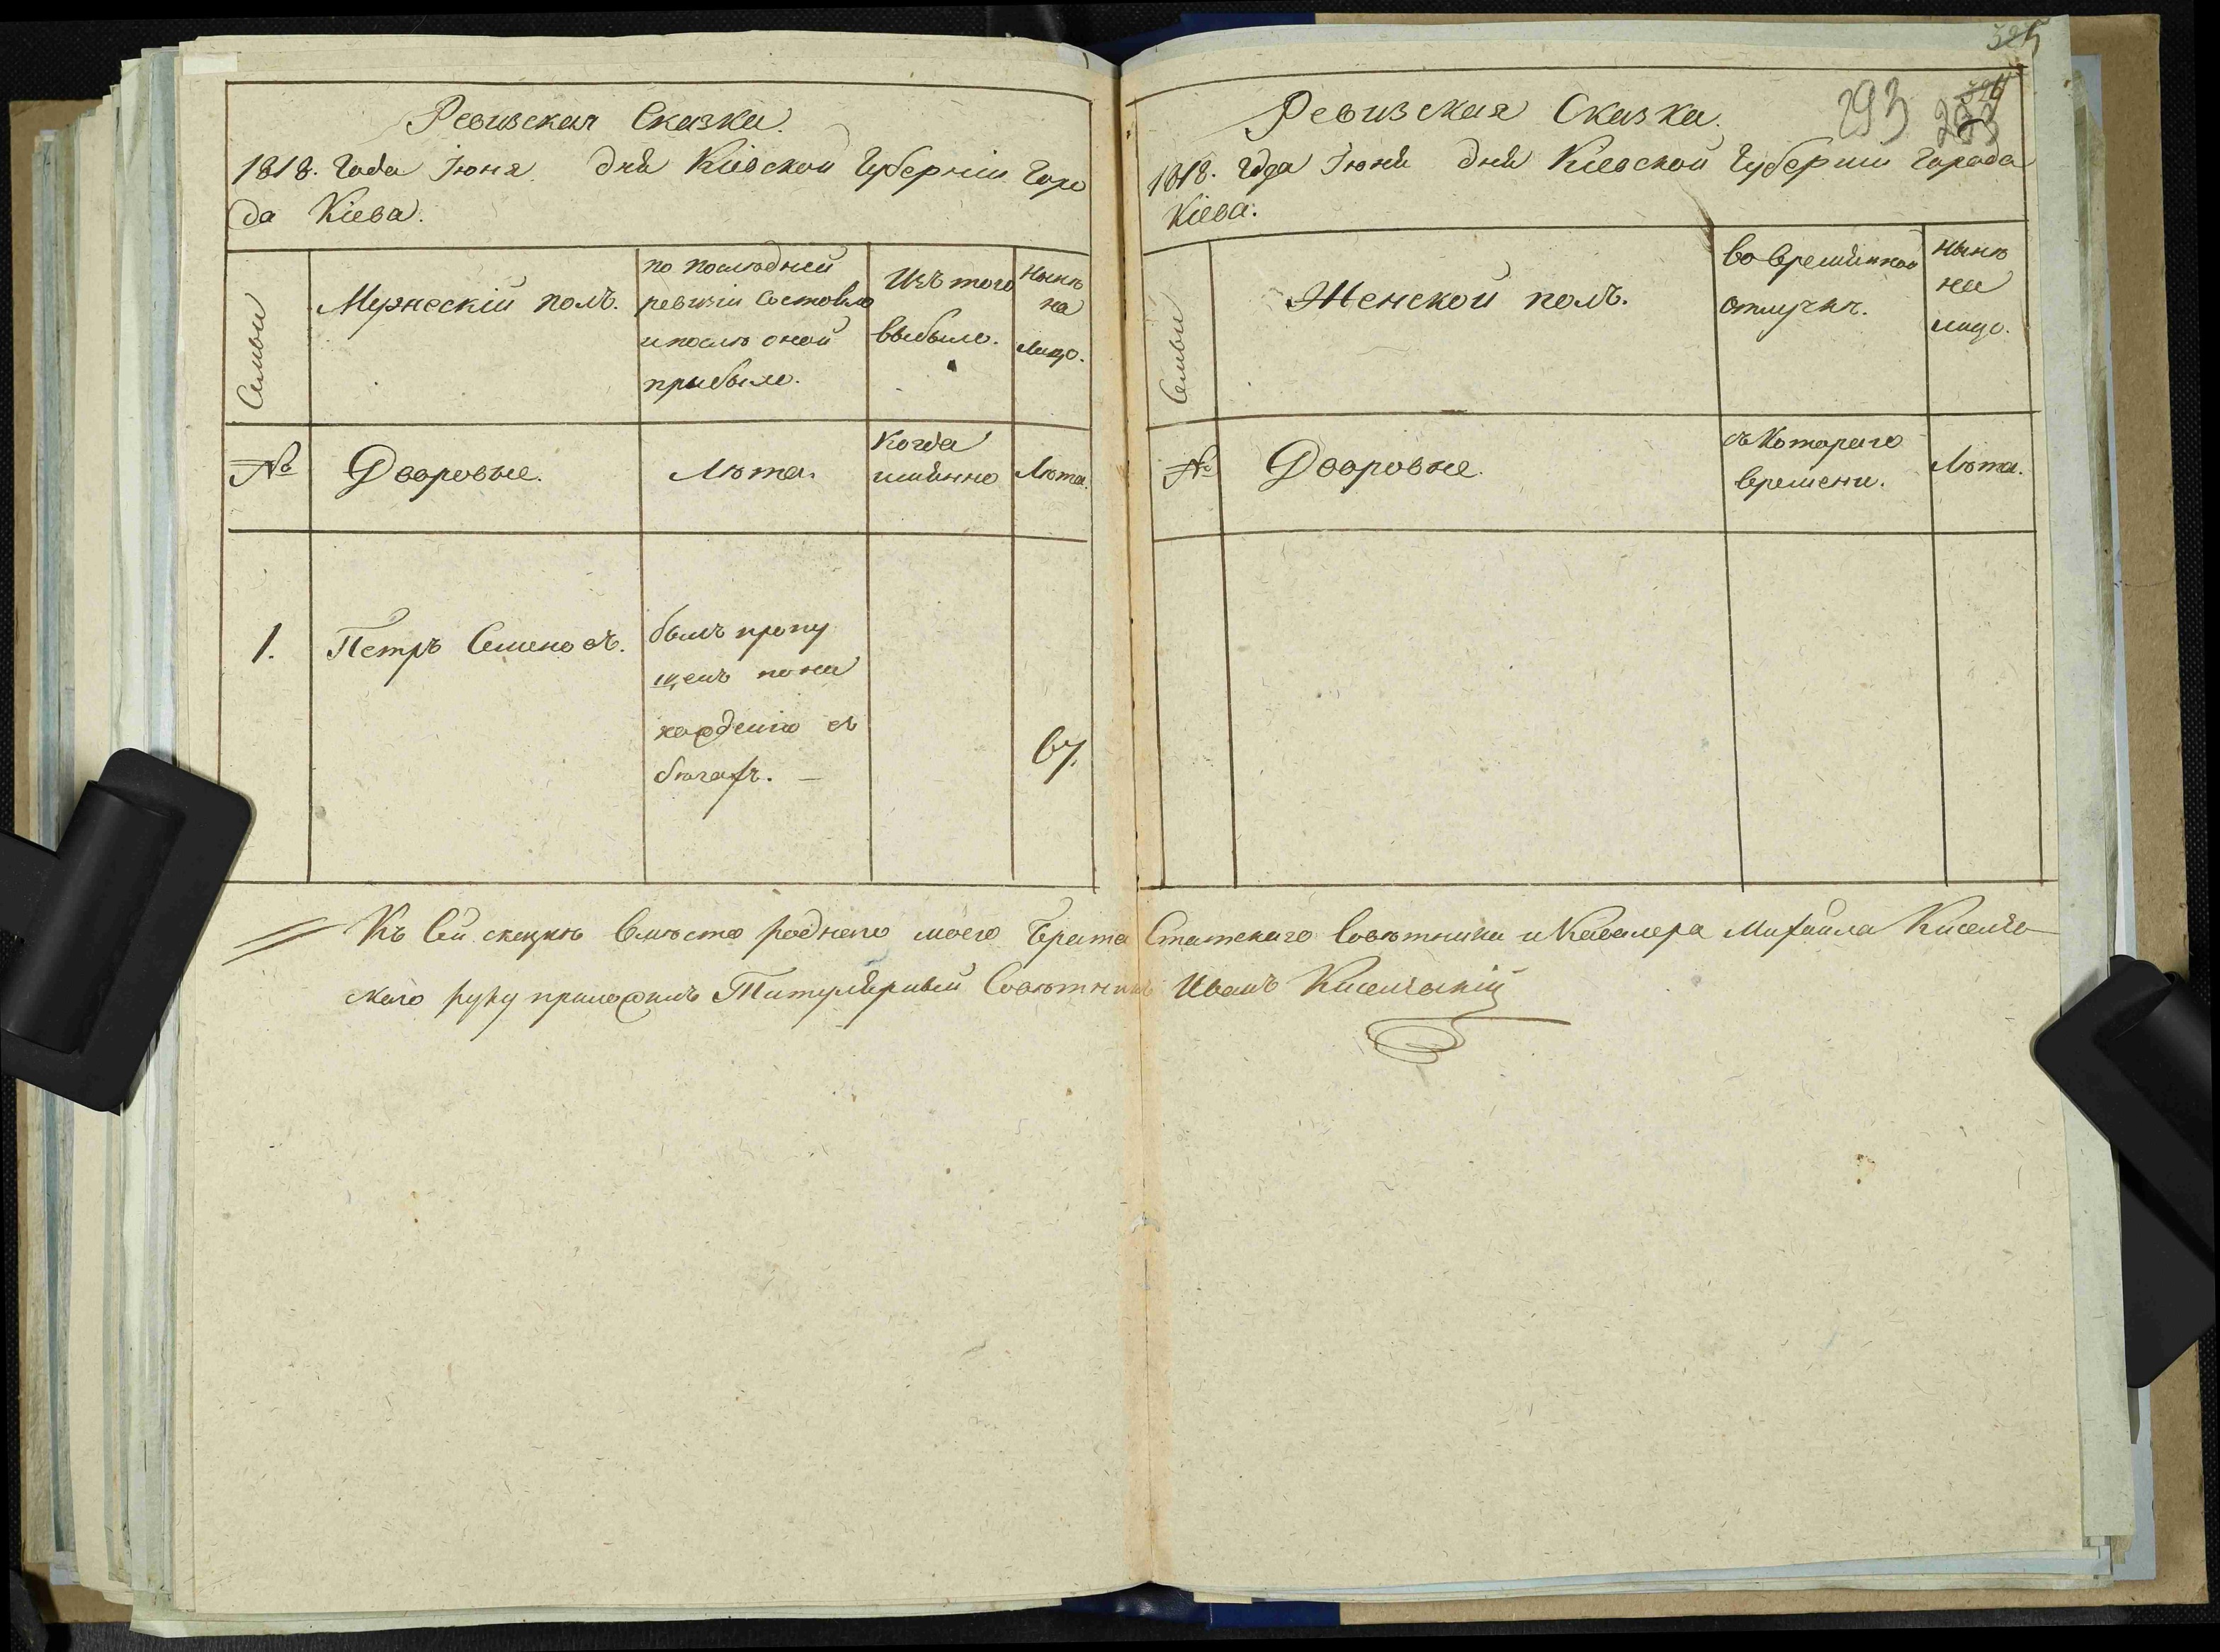 Ревизская Сказка.
1818. Года Іюня дня Кіевской Губерніи Горо
да Кіева.
Семьи
Мужескій полъ.
по послѣдней
ревизіи Состояло
и послѣ оной
прибыло.
Изъ того
выбыло.
Нынѣ
на
лицо.
№
Дворовые.
Лѣта.
Когда
имянно
Лѣта.
1.
Петръ Семеновъ.
былъ пропу
щенъ по на
хожденію въ
бѣгахъ. –
67.
Ревизская Сказка.
293
1818. года Іюня дня Кіевской Губерніи Города
Кіева.
Семьи
Женской полъ.
во временной
отлучкѣ.
Нынѣ
на
лицо.
№
Дворовые.
съ Котораго
времени.
Лѣта.
Къ Сей сказкѣ вмѣсто роднаго моего Брата Статскаго Совѣтника и Кавалера Михаила Кисель
скаго руку приложилъ Титулярный Совѣтникъ Иванъ